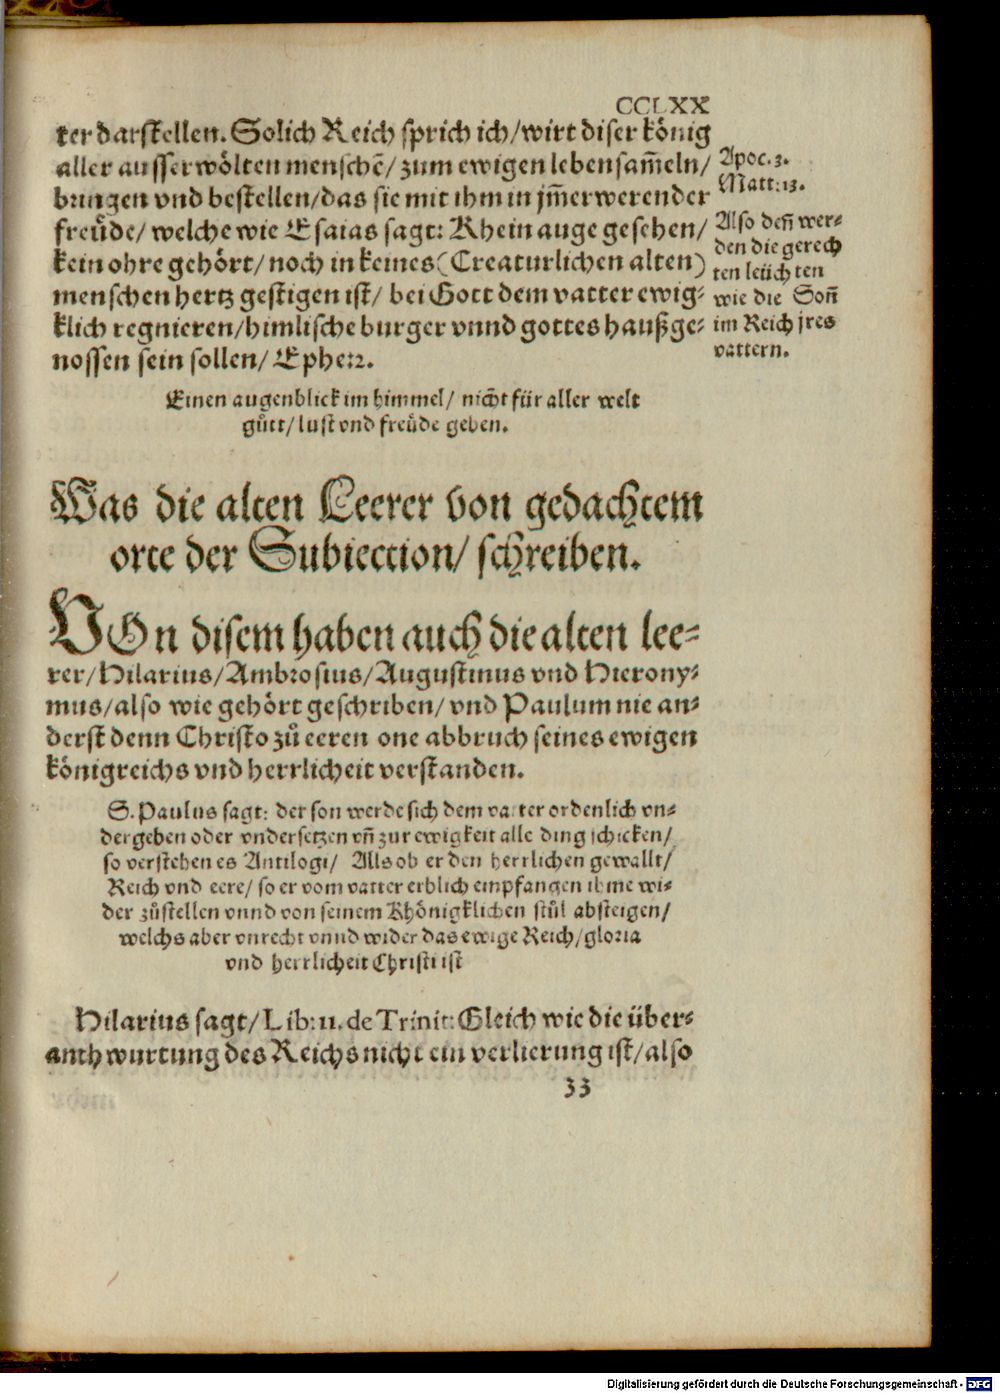 CCLXX
ter darstellen. Solich Reich sprich ich/ wirt diser könig
aller ausserwölten menschē/ zum ewigen leben sam̄eln/
bringen vnd bestellen/ das sie mit ihm in jm̄erwerender
freüde/ welche wie Esaias sagt: Khein auge gesehen/
kein ohre gehört/ noch in keines (Creaturlichen alten)
menschen hertz gestigen ist/ bei Gott dem vatter ewig-
klich regnieren/ himlische burger vnnd gottes haußge-
nossen sein sollen/ Ephe: 2.
Apoc. 3.
Matt: 13.
Also deñ wer-
den die gerech
ten leüchten
wie die Soñ
im Reich jres
vattern.
Einen augenblick im himmel/ nicht für aller welt
gůtt/ lust vnd freüde geben.
Was die alten Leerer von gedachtem
orte der Subiection/ schreiben.
VOn disem haben auch die alten lee-
rer/ Hilarius/ Ambrosius/ Augustinus vnd Hierony-
mus/ also wie gehört geschriben/ vnd Paulum nie an-
derst denn Christo zů eeren one abbruch seines ewigen
königreichs vnd herrlicheit verstanden.
S. Paulus sagt: der son werde sich dem vatter ordenlich vn-
dergeben oder vndersetzen vñ zur ewigkeit alle ding schicken/
so verstehen es Antilogi/ Alls ob er den herrlichen gewallt/
Reich vnd eere/ so er vom vatter erblich empfangen ihme wi-
der zůstellen vnnd von seinem Khönigklichen stůl absteigen/
welchs aber vnrecht vnnd wider das ewige Reich/ gloria
vnd herrlicheit Christi ist
Hilarius sagt/ Lib: 11. de Trinit: Gleich wie die über-
anthwurtung des Reichs nicht ein verlierung ist/ also
zz
Digitalisierung gefördert durch die Deutsche Forschungsgemeinschaft - DFG